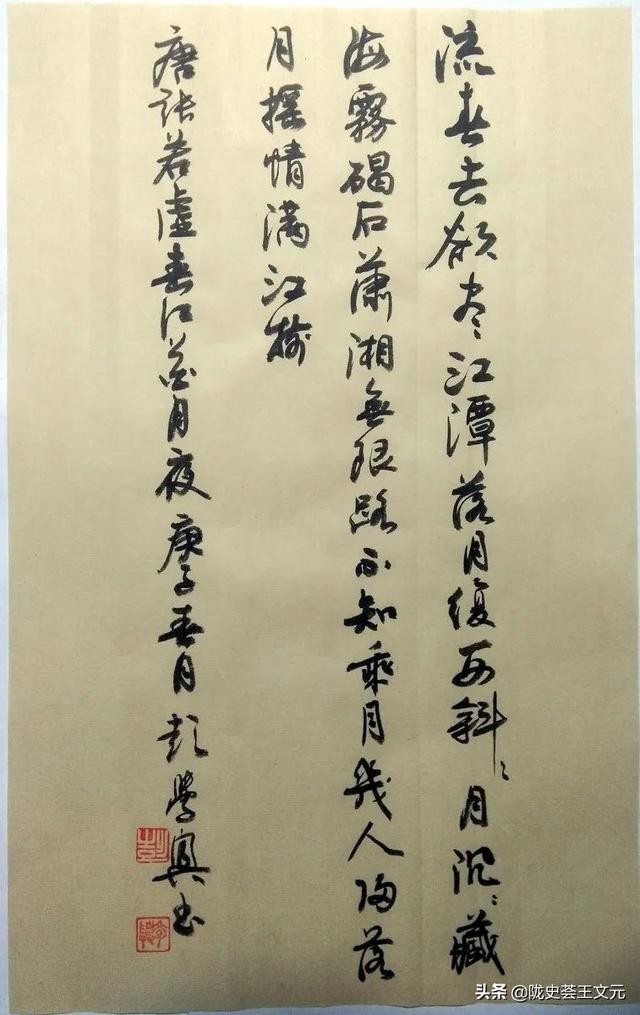 流春去欲尽江潭落月復西斜〻月沉〻藏
海霧碣石蕭湘無限路不知乘月幾人归落
月摇情滿江樹
唐张若虛春江花月夜庚子春月彭學興书
头条 @陇史荟王文元